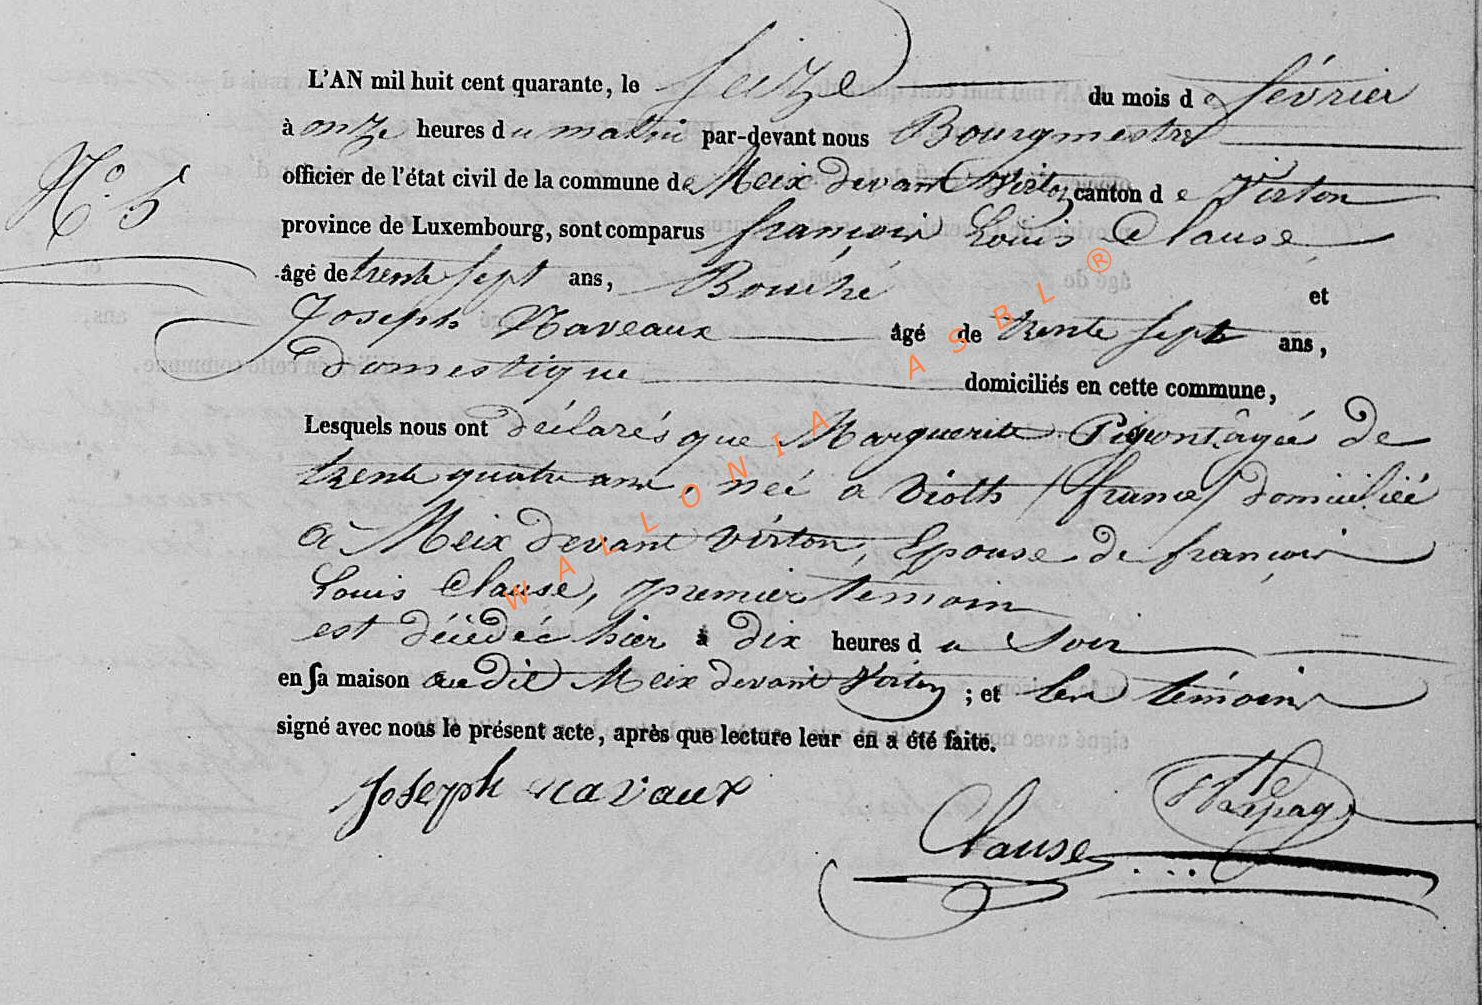 L'AN mil huit cent quarante, le Seize du mois de février
à onze heures du matin par-devant nous Bourgmestre
N.° 5
officier de l'état civil de la commune de Meix devant Virton canton de Virton
province de Luxembourg, sont comparus françois Louis Clause
âgé de trente sept ans, et
Joseph Navaux âgé de trente sept ans,
Domestique domiciliés en cette commune,
Lesquels nous ont déclarés que Marguerite âgée de
trente quatre ans, neé a (france) domiciliée
a Meix devant virton, Epouse de françois
Louis Clause, premier témoin
est décédée hier à dix heures du Soir
en sa maison audit Meix devant Virton ; et les témoins
signé avec nous le présent acte, après que lecture leur en a été faite.
Joseph navaux
Clause
WALLONIA ASBL ®